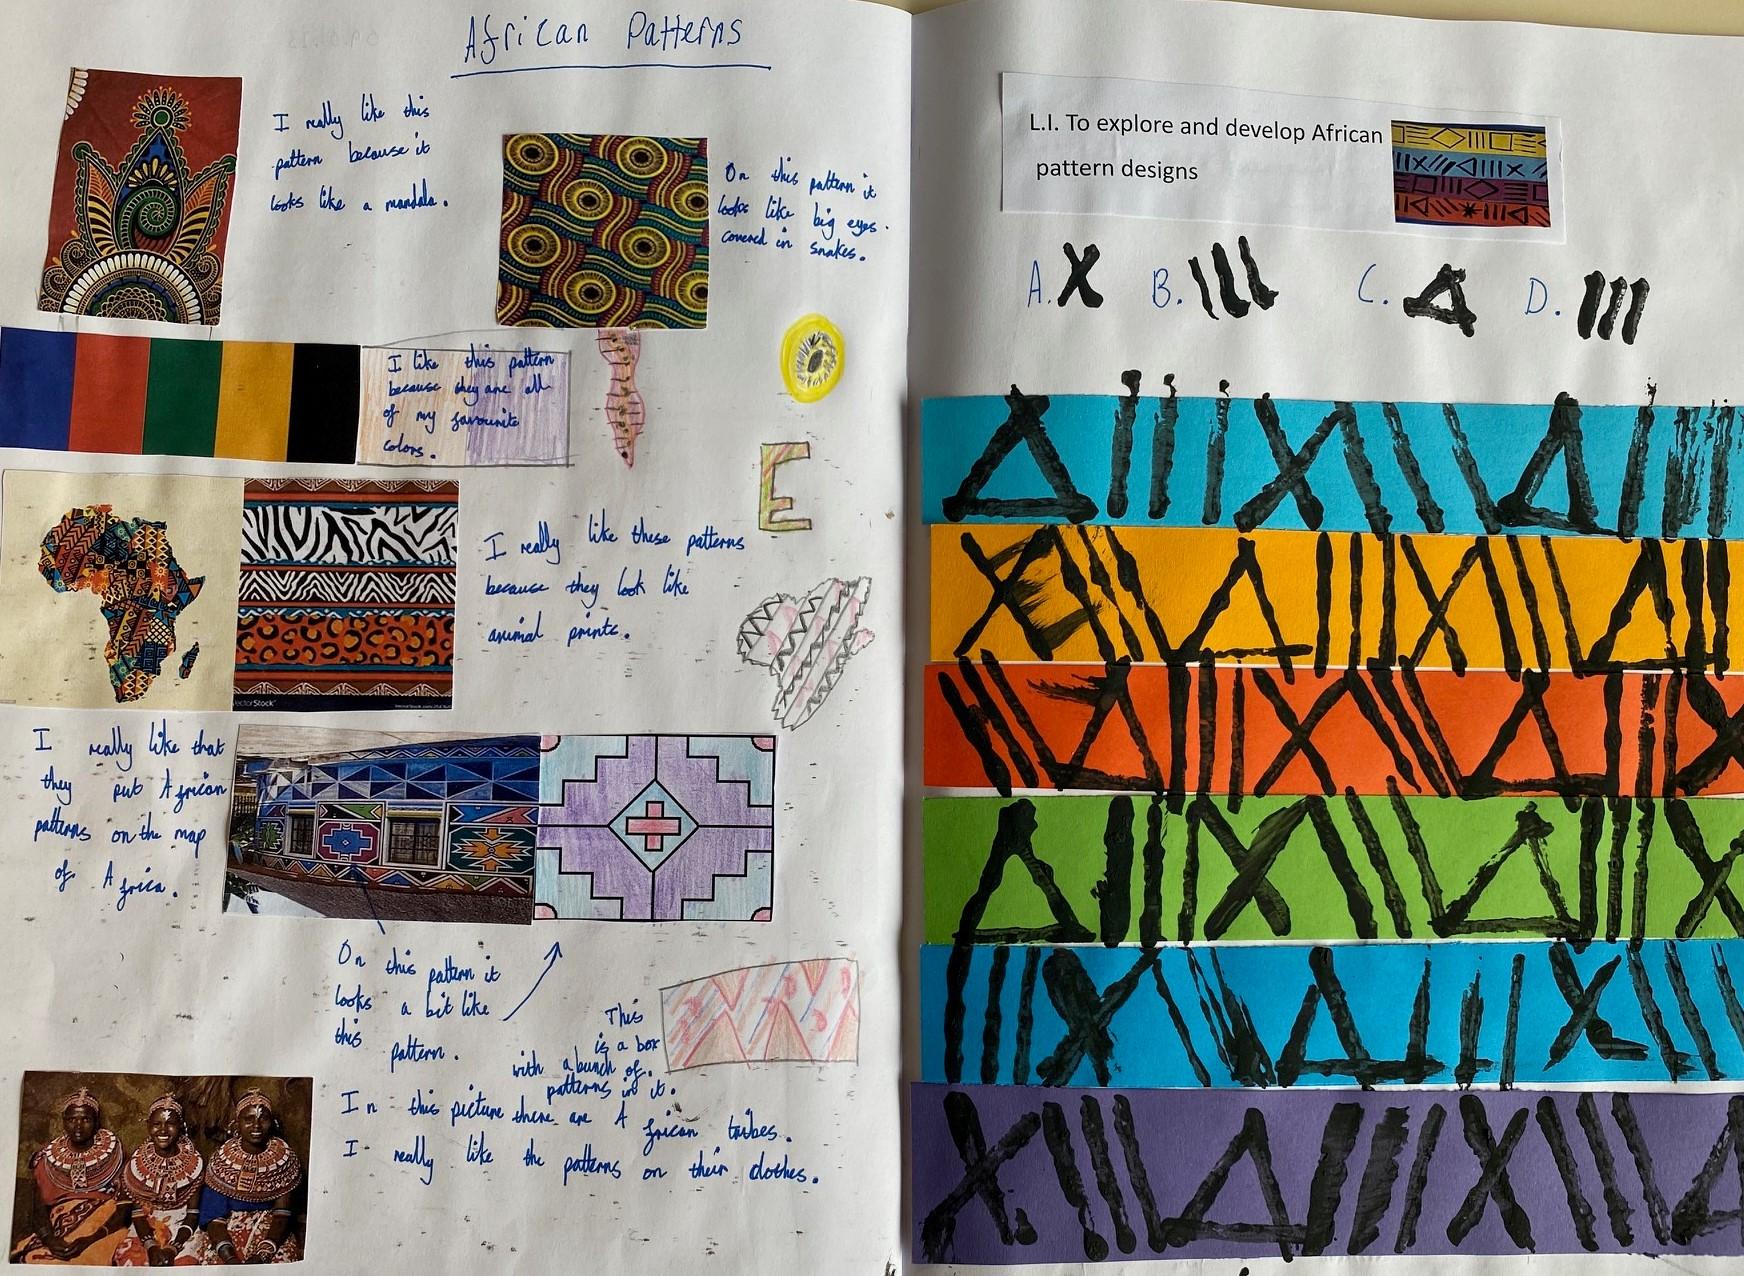 African Patterns
I really like this
pattern because it
looks like a mandala.
On this pattern it
looks like big eyes.
covered in snakes.
I like this pattern
because they are all
of my favourite
colors.
E
I really like these patterns
because they look like
animal prints.
VectorStock
I really like that
they put African
patterns on the map
of Africa.
On this pattern it
looks a bit like
this pattern.
This
is a box
with a bunch of.
patterns in it.
In this picture there are African tribes.
I really like the patterns on their clothes.
L.I. To explore and develop African
pattern designs
A. B. C. D.